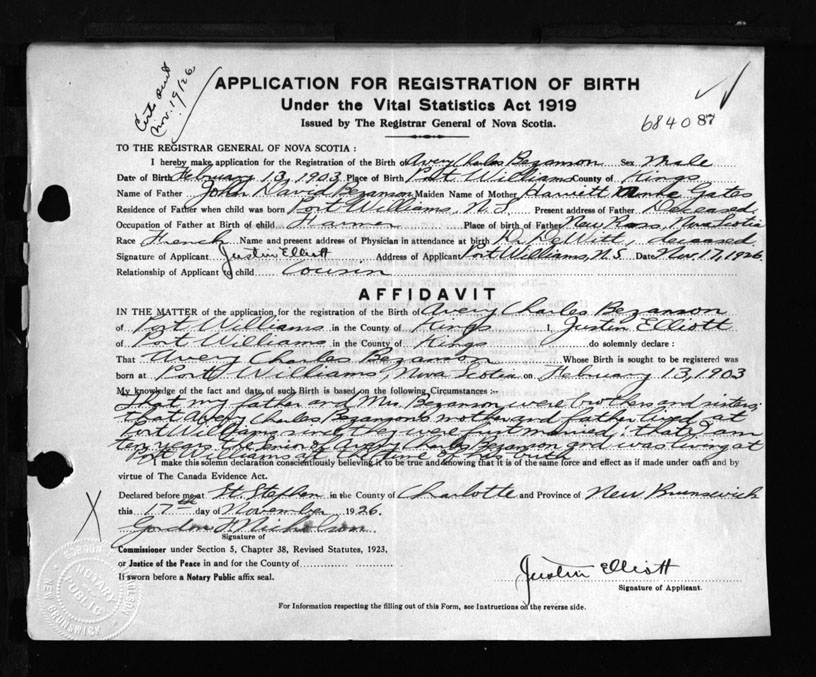 Certs sent
Nov. 19/26
APPLICATION FOR REGISTRATION OF BIRTH
Under the Vital Statistics Act 1919
Issued by The Registrar General of Nova Scotia.
684087
TO THE REGISTRAR GENERAL OF NOVA SCOTIA :
I hereby make application for the Registration of the Birth of Avery Charles Bezanson Sex Male
Date of Birth February 13, 1903 Place of Birth Port Williams County of Kings
Name of Father John David Bezanson Maiden Name of Mother Harriett Gates
Residence of Father when child was born Port Williams, N.S. Present address of Father Deceased
Occupation of Father at Birth of child Farmer Place of birth of Father New Ross, Nova Scotia
Race French Name and present address of Physician in attendance at birth Dr. DeWitt, deceased
Signature of Applicant Justin Elliott Address of Applicant Port Williams, N.S. Date Nov. 17, 1926.
Relationship of Applicant to child cousin
AFFIDAVIT
IN THE MATTER of the application for the registration of the Birth of Avery Charles Bezanson
of Port Williams in the County of Kings I, Justin Elliott
of Port Williams in the County of Kings do solemnly declare :
That Avery Charles Bezanson Whose Birth is sought to be registered was
born at Port Williams, Nova Scotia on February 13, 1903
My knowledge of the fact and date of such Birth is based on the following Circumstances :-
That my father and Mrs. Bezanson were brothers and sisters;
that Avery Charles Bezanson's mother and father lived at
Port Williams since they were first married; that I am
ten years the senior of Avery Charles Bezanson and was living at
Port Williams at the time of his birth
I make this solemn declaration conscientiously believing it to be true and knowing that it is of the same force and effect as if made under oath and by
virtue of The Canada Evidence Act.
Declared before me at St. Stephen in the County of Charlotte and Province of New Brunswick
this 17th day of November 1926.
Gordon Nicholson
Signature of
Commissioner under Section 5, Chapter 38, Revised Statutes, 1923,
or Justice of the Peace in and for the County of
If sworn before a Notary Public affix seal.
Justin Elliott
Signature of Applicant.
For Information respecting the filling out of this Form, see Instructions on the reverse side.
GORDON
NOTARY
PUBLIC
NEW BRUNSWICK